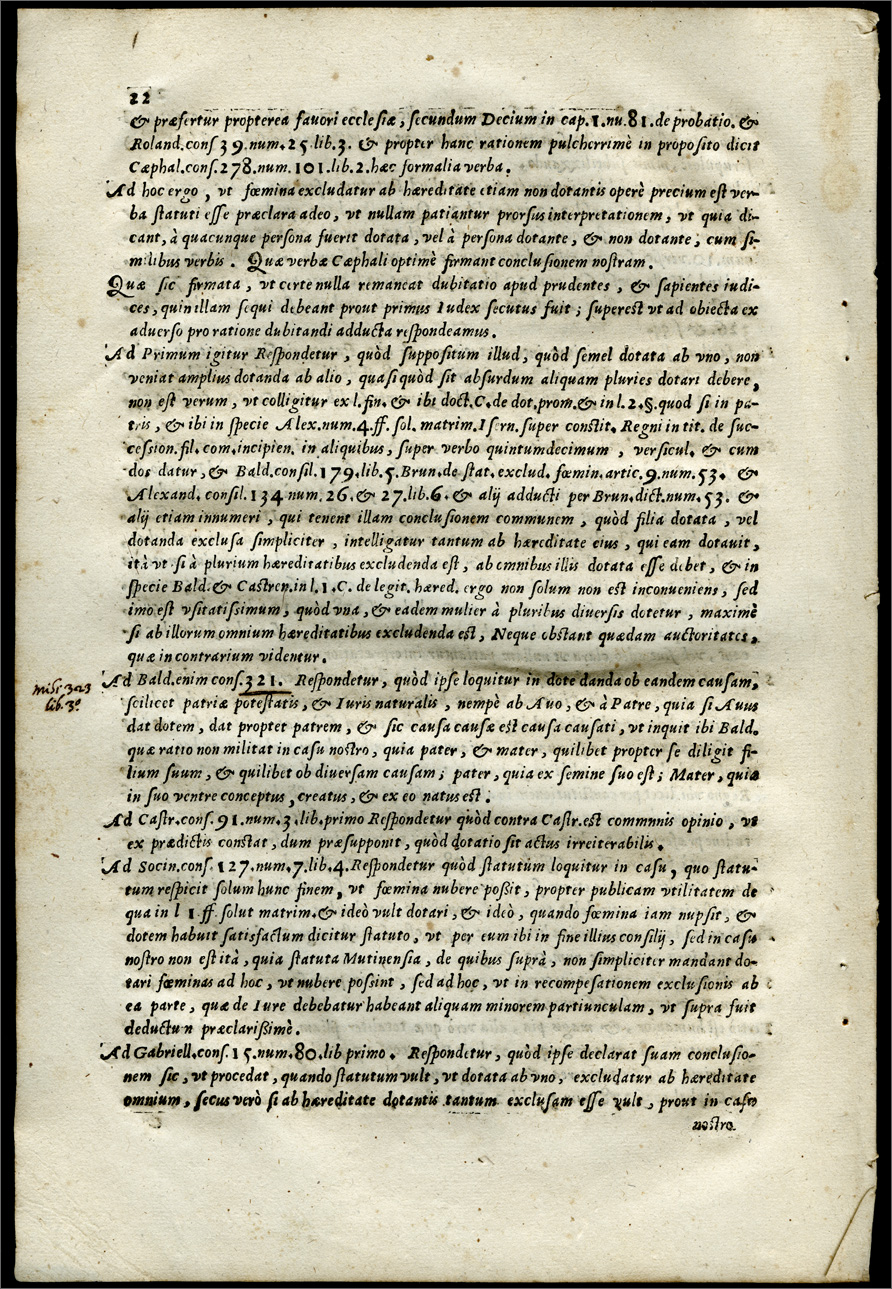 22
& præfertur propterea fauori ecclesiæ, secundum Decium in cap.1.nu.81.de probatio. &
Roland.cons.39.num.25.lib.3. & propter hanc rationem pulcherrimè in proposito dicit
Cæphal.cons.278.num.101.lib.2.hæc formalia verba.
Ad hoc ergo, vt fœmina excludatur ab hæreditate etiam non dotantis operè precium est ver-
ba statuti esse præclara adeo, vt nullam patiantur prorsus interpretationem, vt quia di-
cant, à quacunque persona fuerit dotata, vel à persona dotante, & non dotante, cum si-
milibus verbis. Quæ verba Cæphali optimè firmant conclusionem nostram.
Quæ sic firmata, vt certe nulla remaneat dubitatio apud prudentes, & sapientes iudi-
ces, quin illam sequi debeant prout primus Iudex secutus fuit; superest vt ad obiecta ex
aduerso pro ratione dubitandi adducta respondeamus.
Ad Primum igitur Respondetur, quòd suppositum illud, quòd semel dotata ab vno, non
veniat amplius dotanda ab alio, quasi quòd sit absurdum aliquam pluries dotari debere,
non est verum, vt colligitur ex l.fin. & ibi doct.C.de dot.prom.& in l.2.§.quod si in pa-
tris, & ibi in specie Alex.num.4.ff.sol.matrim.Isern.super constit. Regni in tit. de suc-
cession.fil.com.incipien. in aliquibus, super verbo quintumdecimum, versicul. & cum
dos datur, & Bald.consil.179.lib.5.Brun.de stat.exclus.fœmin.artic.9.num.53. &
Alexand. consil.134.num.26.& 27.lib.6.& alij adducti per Brun.dict.num.53. &
alij etiam innumeri, qui tenent illam conclusionem communem, quòd filia dotata, vel
dotanda exclusa simpliciter, intelligatur tantum ab hæreditate eius, qui eam dotauit,
ità vt si à plurium hæreditatibus excludenda est, ab omnibus illis dotata esse debet, & in
specie Bald.& Castren.in l.1.C.de legit.hæred.ergo non solum non est inconueniens, sed
imo est vsitatissimum, quòd vna, & eadem mulier à pluribus diuersis dotetur, maximè
si ab illorum omnium hæreditatibus excludenda est, Neque obstant quædam auctoritates,
quæ in contrarium videntur.
misc. 323
lib. 3º
Ad Bald.enim cons.321. Respondetur, quòd ipse loquitur in dote danda ob eandem causam,
scilicet patriæ potestatis, & Iuris naturalis, nempè ab Auo, & à Patre, quia si Auus
dat dotem, dat proptet patrem, & sic causa causæ est causa causati, vt inquit ibi Bald.
quæ ratio non militat in casu nostro, quia pater, & mater, quilibet propter se diligit fi-
lium suum, & quilibet ob diuersam causam; pater, quia ex semine suo est; Mater, quia
in suo ventre conceptus, creatus, & ex eo natus est.
Ad Castr.cons.91.num.3.lib.primo Respondetur quòd contra Castr.est communis opinio, vt
ex prædictis constat, dum præsupponit, quòd dotatio sit actus irreiterabilis.
Ad Socin.cons.127.num.7.lib.4.Respondetur quòd statutum loquitur in casu, quo statu-
tum respicit solum hunc finem, vt fœmina nubere poßit, propter publicam vtilitatem de
qua in l 1.ff.solut matrim.& ideò vult dotari, & ideò, quando fœmina iam nupsit, &
dotem habuit satisfactum dicitur statuto, vt per eum ibi in fine illius consilij, sed in casu
nostro non est ità, quia statuta Mutinensia, de quibus suprà, non simpliciter mandant do-
tari fœminas ad hoc, vt nubere possint, sed ad hoc, vt in recompesationem exclusionis ab
ea parte, quæ de Iure debebatur habeant aliquam minorem partiunculam, vt supra fuit
deductun præclarißimè.
Ad Gabriell.cons.15.num.80.lib primo. Respondetur, quòd ipse declarat suam conclusio-
nem sic, vt procedat, quando statutum vult, vt dotata ab vno, excludatur ab hæreditate
omnium, secus verò si ab hæreditate dotantis tantum exclusam esse vult, prout in casu
nostro